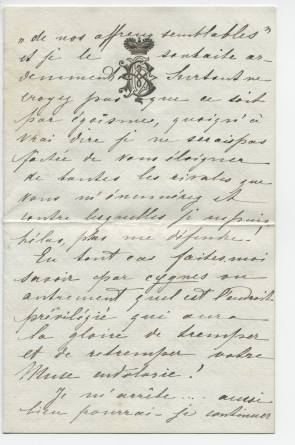 " de nos affreux semblables "
et je le souhaite ar-
demment. Surtout ne
croyez pas que ce soit
par égoïsme, quoiqu'à
vrai dire je ne serais pas
fachée de vous éloigner
de toutes les rivales que
vous m'énumérez et
contre lesquelles je ne puis,
hélas, pas me défendre!
En tout cas faites-moi
savoir par cygnes ou
autrement quel est l'endroit
préviligié qui aura
la gloire de tremper
et de retremper votre
Muse endolorie!
Je m'arrête... aussi
bien pourrai-je continuer